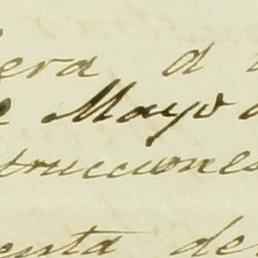 era a
Mayo
trucciones
enta de